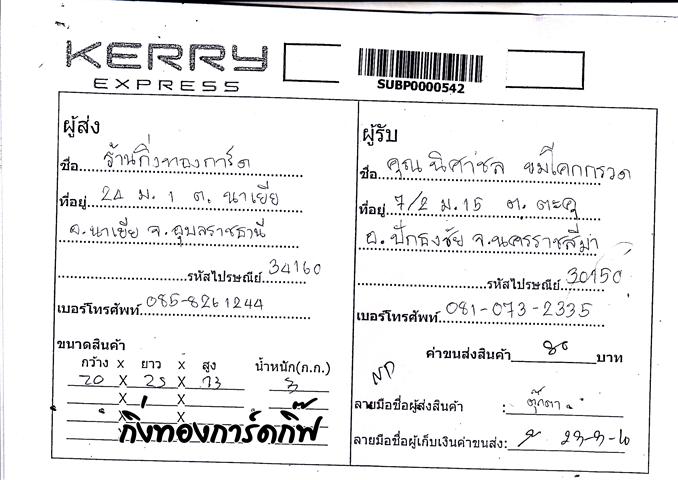 KERRY
EXPRESS
SUBP0000542
ผู้ส่ง
ชื่อ ร้านกิ่งทองการ์ด
ที่อยู่ 24 ม. 1 ต. นาเยีย
อ.นาเยีย จ.อุบลราชธานี
รหัสไปรษณีย์ 34160
เบอร์โทรศัพท์ 085-8261244
ขนาดสินค้า
กว้าง x ยาว x สูง น้ำหนัก(ก.ก.)
20 X 25 X 13 3
X X
X
X
กิ่งทองการ์ดกิ๊ฟ
ผู้รับ
ชื่อ คุณ นิศาชล
ที่อยู่ 7/2 ม.15 ต. ตะคุ
อ. ปักธงชัย จ.นครราชสีมา
รหัสไปรษณีย์ 30150
เบอร์โทรศัพท์ 081-073-2335
ค่าขนส่งสินค้า 80 บาท
ลายมือชื่อผู้ส่งสินค้า : ตุ๊กตา
ลายมือชื่อผู้เก็บเงินค่าขนส่ง: